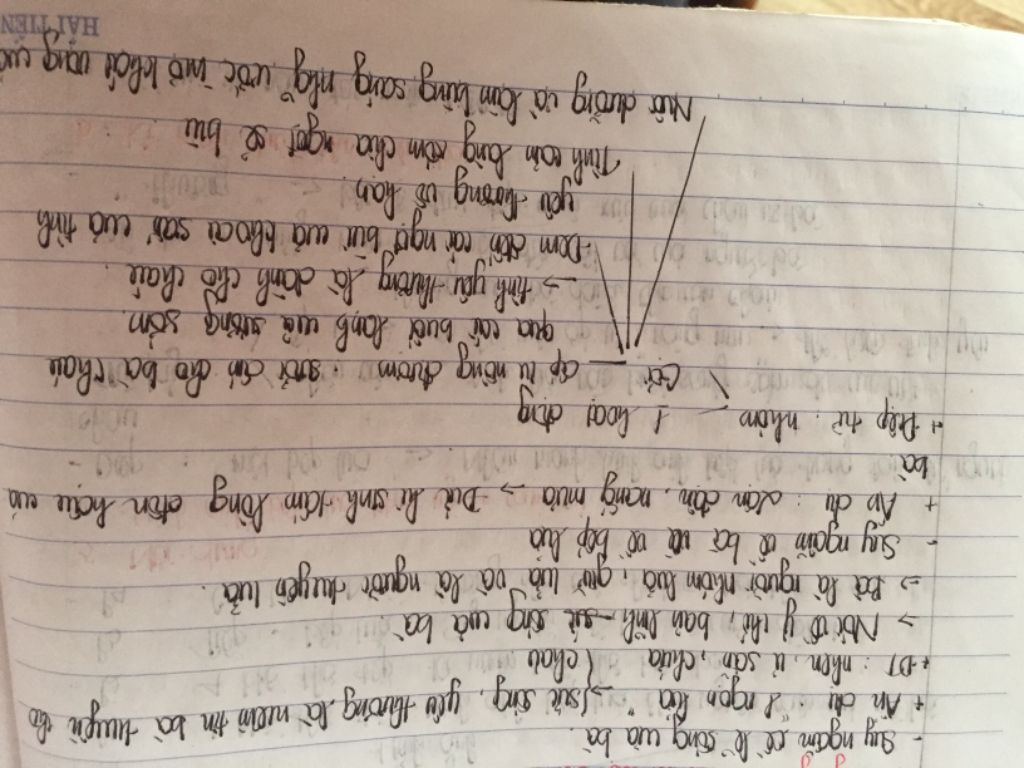 - Suy ngẫm về lẽ sống của bà.
+ Ẩn dụ "1 ngọn lửa" → sức sống, yêu thương, là niềm tin bà truyền cho
+ ĐT: nhen, ủ sẵn, chứa (cháu
→ Nói về ý chí, bản lĩnh sức sống của bà
⇒ Bà là người nhóm lửa, giữ lửa và là người truyền lửa.
- Suy ngẫm về bà và về bếp lửa
+ Ẩn dụ: lận đận, nắng mưa → Đức hi sinh tấm lòng đôn hậu của
bà
+ Điệp từ: nhóm 1 hoạt động
Gợi: ấp iu nồng đượm: sưởi ấm cho bà cháu
qua cái buốt lạnh của sương sớm.
→ tình yêu thương bà dành cho cháu.
- Đem đến cái ngọt bùi của khoai sắn của tình
yêu thương vô hạn
Tình làng xóm chia ngọt sẻ bùi
Nuôi dưỡng và làm bừng sáng nhg ước mơ khát vọng của
HẢI TIẾN